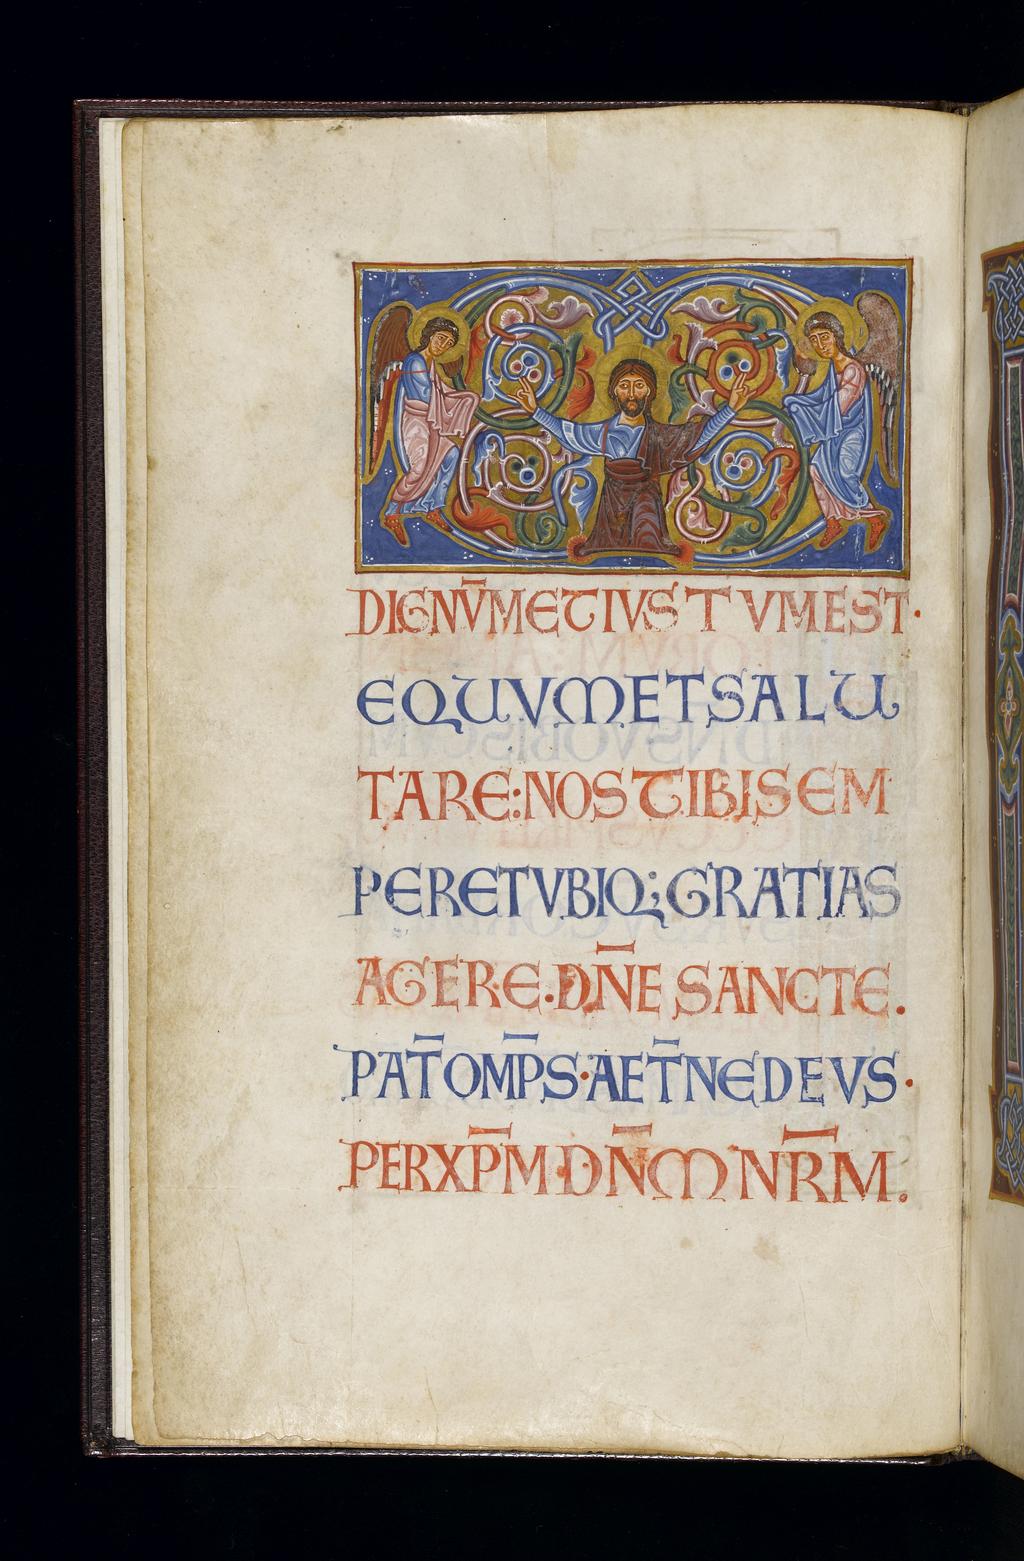 DIGNV̄METIVSTVMEST·
EQUVMETSALU
TARE:NOSTIBISEM
PERETVBIQ;GRATIAS
AGERE.DN̄E SANCTE.
PAT̄OMP̄S·AET̄NEDEVS·
PERXP̄M·DN̄M NR̄M.